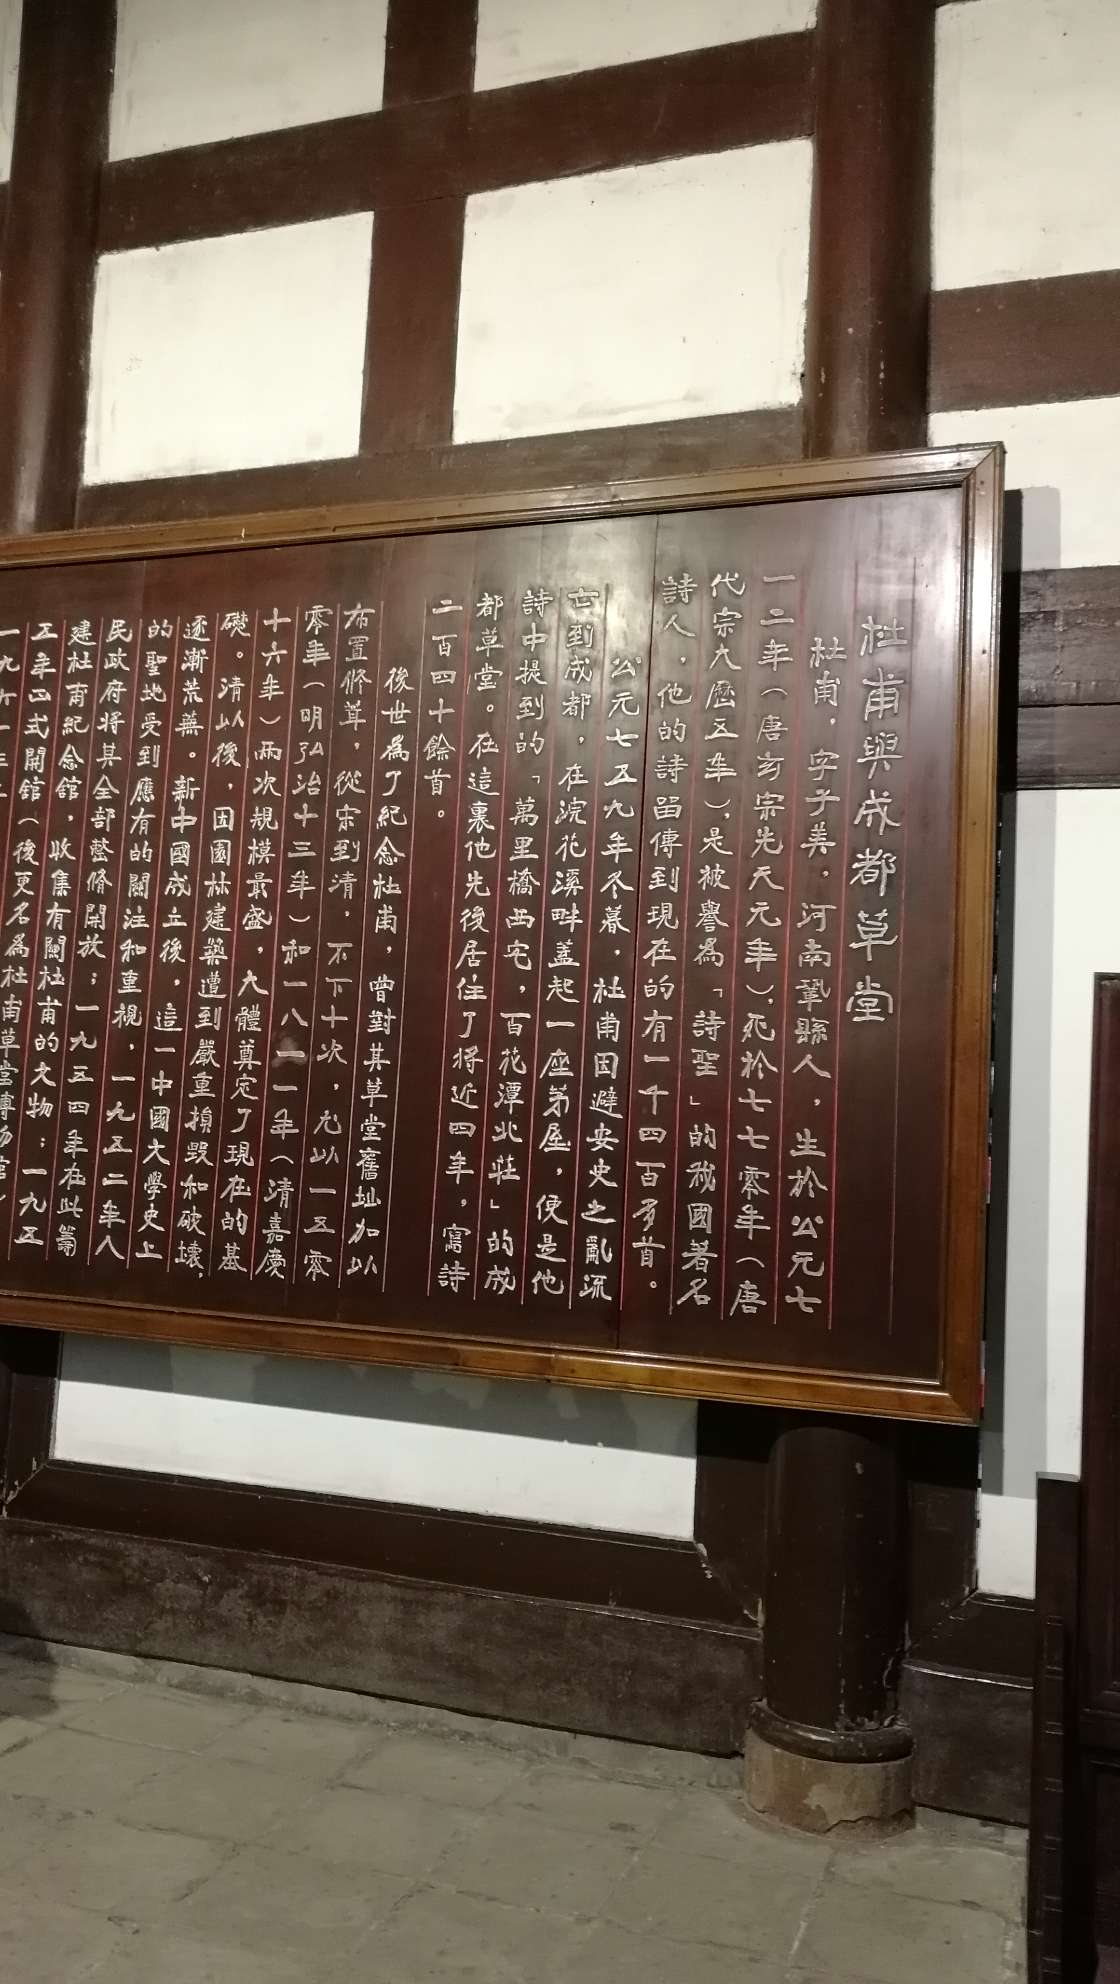 杜甫與成都草堂
杜甫，字子美，河南鞏縣人，生於公元七
一二年（唐玄宗先天元年），死於七七零年（唐
代宗大曆五年），是被譽為「詩聖」的我國著名
詩人，他的詩留傳到現在的有一千四百多首。
公元七五九年冬暮，杜甫因避安史之亂流
亡到成都，在浣花溪畔蓋起一座茅屋，便是他
詩中提到的「萬里橋西宅，百花潭北莊」的成
都草堂。在這裏他先後居住了將近四年，寫詩
二百四十餘首。
後世為了紀念杜甫，曾對其草堂舊址加以
布置修葺，從宋到清，不下十次，尤以一五零
零年（明弘治十三年）和一八一一年（清嘉慶
十六年）兩次規模最盛，大體奠定了現在的基
礎。清以後，因園林建築遭到嚴重損毀和破壞，
逐漸荒蕪。新中國成立後，這一中國文學史上
的聖地受到應有的關注和重視，一九五二年人
民政府將其全部整脩開放；一九五四年在此籌
建杜甫紀念館，收集有關杜甫的文物；一九五
五年正式開館（後更名為杜甫草堂博物館）
一九六一年